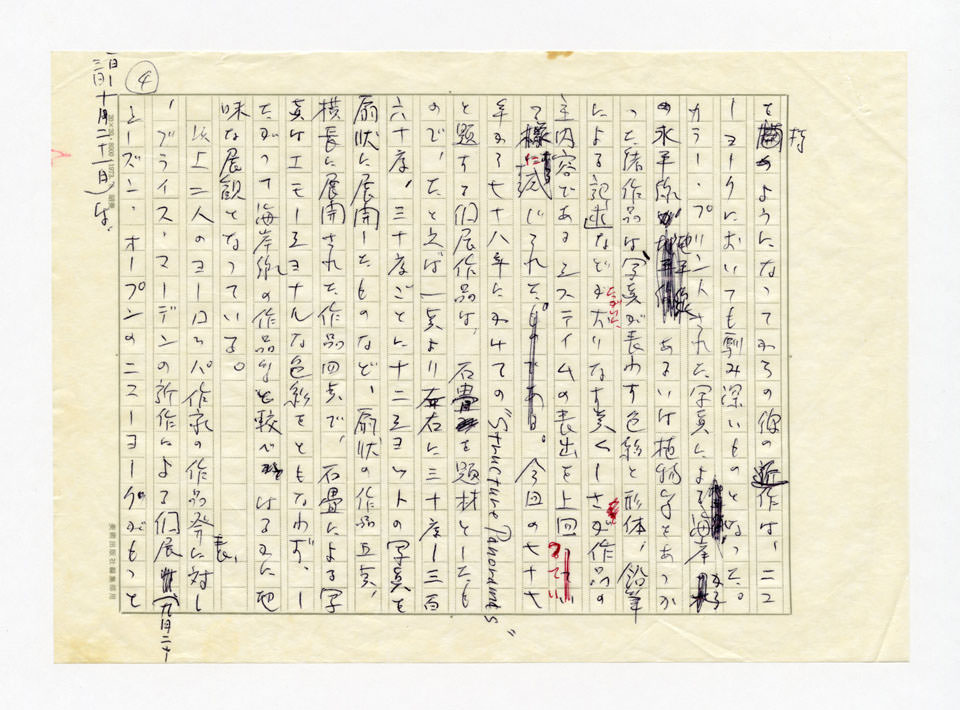 ④
を持つようになってからの彼の近作は、ニュ
ーヨークにおいても馴み深いものとなった。
カラー・プリントされた写真による海岸
の水平線、地平線あるいは植物などをあつか
った諸作品は、写真が表わす色彩と形体、鉛筆
による記述などがたがいに大いなる美くしさが作品の
主内容であるシステイムの表出を上回っ
て様に感じられた。今回の七十七
年から七十八年にかけての“Structure Panoramas”
と題する個展作品は、石畳を題材としたも
ので、たとえば一点より左右に三十度ー三百
六十度、三十度ごとに十二ショットの写真を
扇状に展開したものなど、扇状の作品五点、
横長に展開された作品四点で、石畳による写
真はエモーショナルな色彩をともなわず、し
たがって海岸線の作品などと較べはるかに地
味な展観となっている。
以上二人のヨーロッパ作家の作品発表に対し
、ブライス・マーデンの新作による個展（九月二十
三日ー十月二十一日）は、
シーズン・オープンのニューヨークがもっと
美術出版社編集部用